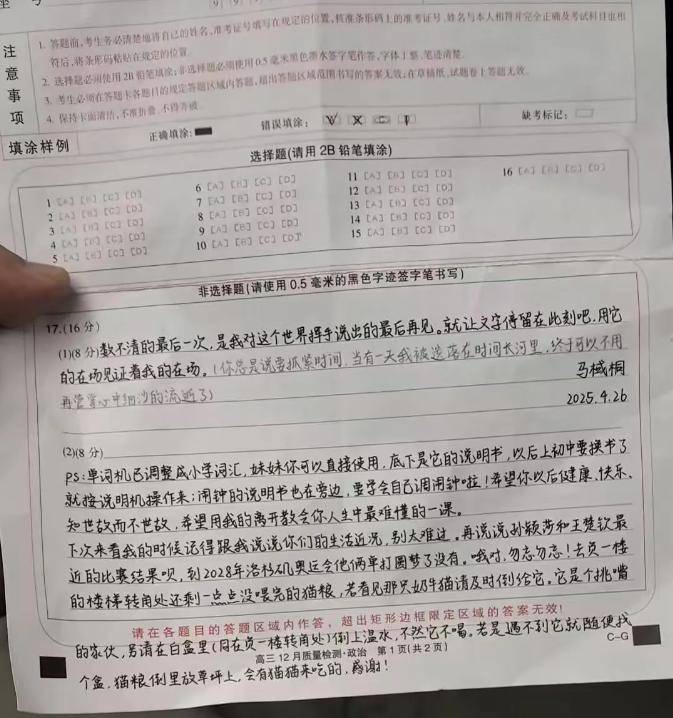 注意事项
1. 答题前,考生务必清楚地将自己的姓名、准考证号填写在规定的位置,核准条形码上的准考证号、姓名与本人相符并完全正确及考试科目也相
符后,将条形码粘贴在规定的位置。
2. 选择题必须使用2B铅笔填涂;非选择题必须使用0.5毫米黑色墨水签字笔作答,字体工整、笔迹清楚。
3. 考生必须在答题卡各题目的规定答题区域内答题,超出答题区域范围书写的答案无效;在草稿纸、试题卷上答题无效。
4. 保持卡面清洁,不准折叠、不得弄破。
填涂样例 正确填涂: 错误填涂: 缺考标记:
选择题(请用 2B 铅笔填涂)
1 [A] [B] [C] [D] 6 [A] [B] [C] [D] 11 [A] [B] [C] [D] 16 [A] [B] [C] [D]
2 [A] [B] [C] [D] 7 [A] [B] [C] [D] 12 [A] [B] [C] [D]
3 [A] [B] [C] [D] 8 [A] [B] [C] [D] 13 [A] [B] [C] [D]
4 [A] [B] [C] [D] 9 [A] [B] [C] [D] 14 [A] [B] [C] [D]
5 [A] [B] [C] [D] 10 [A] [B] [C] [D] 15 [A] [B] [C] [D]
非选择题(请使用 0.5 毫米的黑色字迹签字笔书写)
17.(16 分)
(1)(8 分)数不清的最后一次,是我对这个世界挥手说出的最后再见。就让文字停留在此刻吧,用它
的在场见证着我的在场。(你总是说要抓紧时间,当有一天我被遗落在时间长河里,终于可以不用
再管掌心中细沙的流逝了)
马械桐
2025.4.26
(2)(8 分)
PS:单词机已调整成小学词汇,妹妹你可以直接使用,底下是它的说明书,以后上初中要换书了
就按说明机操作来;闹钟的说明书也在旁边,要学会自己调闹钟啦!希望你以后健康、快乐、
知世故而不世故,希望用我的离开教会你人生中最难懂的一课。
下次来看我的时候记得跟我说说你们的生活近况,别太难过。再说说孙颖莎和王楚钦最
近的比赛结果呗,到2028年洛杉矶奥运会他俩单打圆梦了没有。哦对,勿忘勿忘!去负一楼
的楼梯转角处还剩一点点没喂完的猫粮,若看见那只奶牛猫请及时倒给它。它是个挑嘴
请在各题目的答题区域内作答,超出矩形边框限定区域的答案无效!
的家伙,另请在白盒里(同在负一楼转角处)倒上温水,不然它不喝。若是遇不到它就随便找
高三 12 月质量检测·政治 第 1 页(共 2 页) C-G
个盒,猫粮倒里放草坪上,会有猫猫来吃的,感谢!